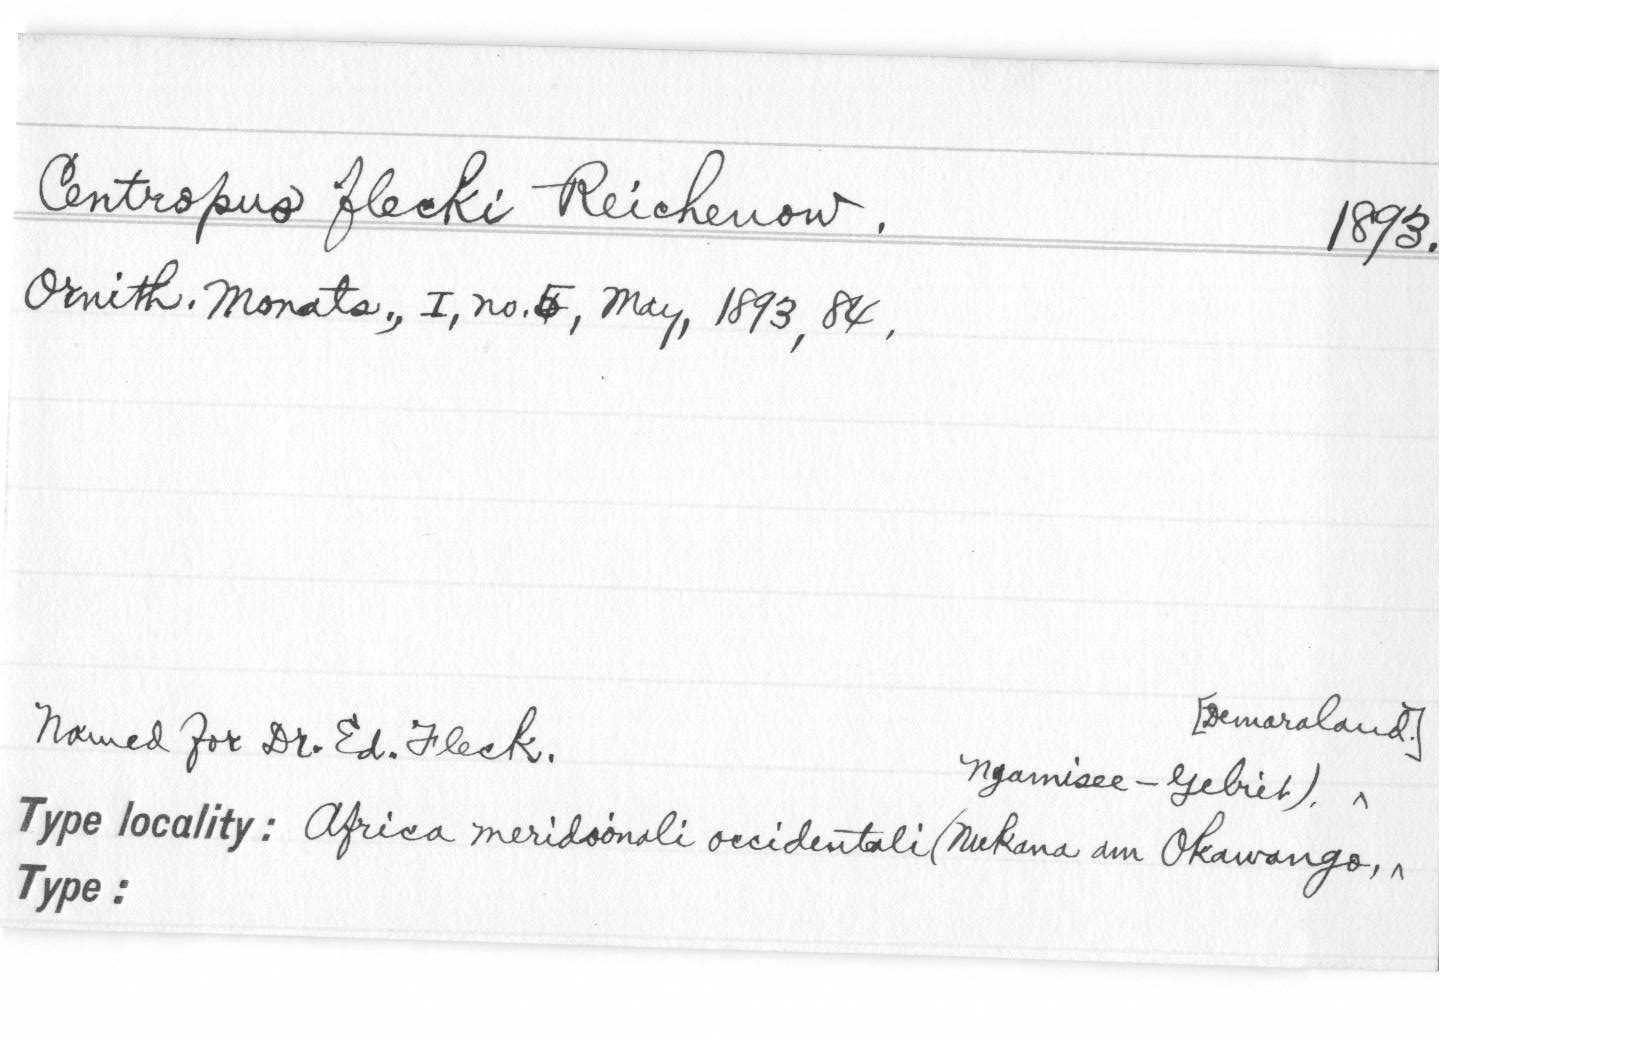 Centropus flecki Reichenow. 1893.
Ornith. Monats., I, no. 5, May, 1893, 84.
Named for Dr. Ed. Fleck.
[Demaraland.]
Ngamisee-Gebiet). ^
Type locality: Africa meridoónali occidentali (Nukana am Okawango, ^
Type: